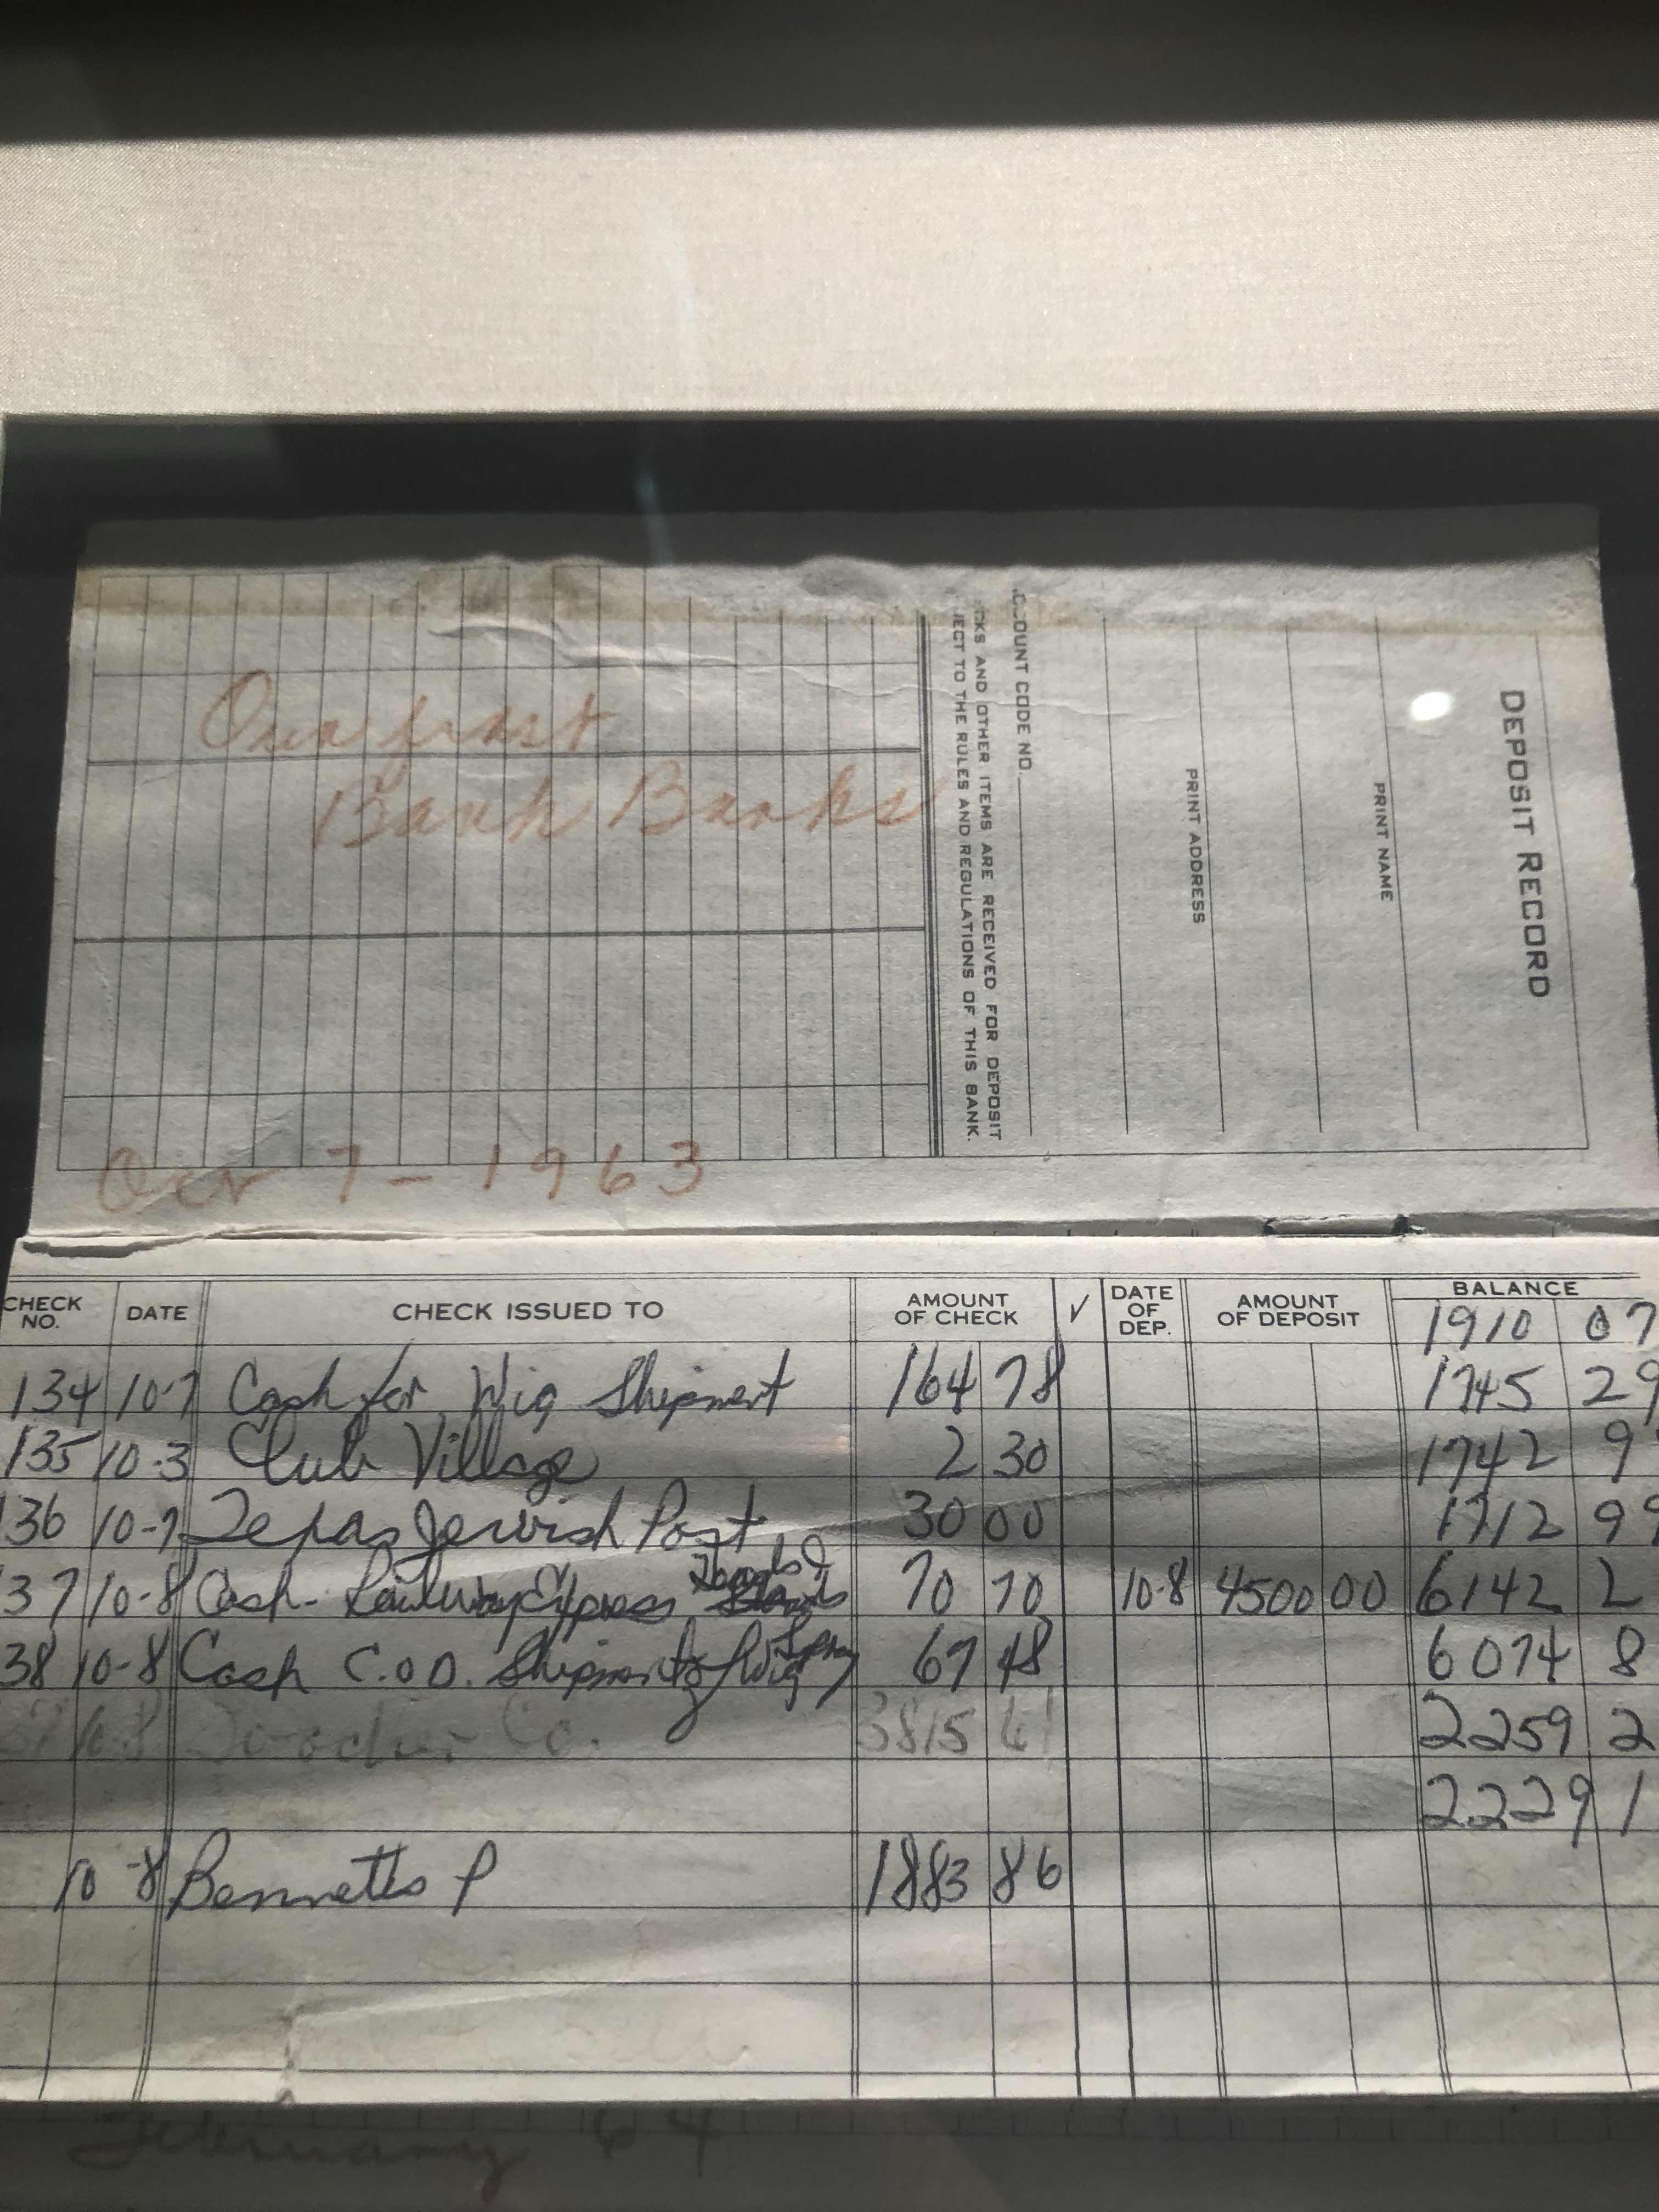 DEPOSIT RECORD
PRINT NAME
PRINT ADDRESS
COUNT CODE NO.
CKS AND OTHER ITEMS ARE RECEIVED FOR DEPOSIT
JECT TO THE RULES AND REGULATIONS OF THIS BANK.
Our first
Bank Books
Oct 7-1963
CHECK NO. DATE CHECK ISSUED TO AMOUNT OF CHECK √ DATE OF DEP. AMOUNT OF DEPOSIT BALANCE
1910 07
134 10-7 Cash for Wig Shipment 164 78 1745 29
135 10-3 Club Village 2 30 1742 9
136 10-7 Texas Jewish Post 30 00 1712 99
37 10-8 Cash- Railway Express 70 70 10-8 4500 00 6142 2
38 10-8 Cash C.O.D. Shipment of Wig Spray 67 48 6074 8
Co. 3815 61 2259 2
2229 1
10-8 Bennetts P 1883 86
February 64